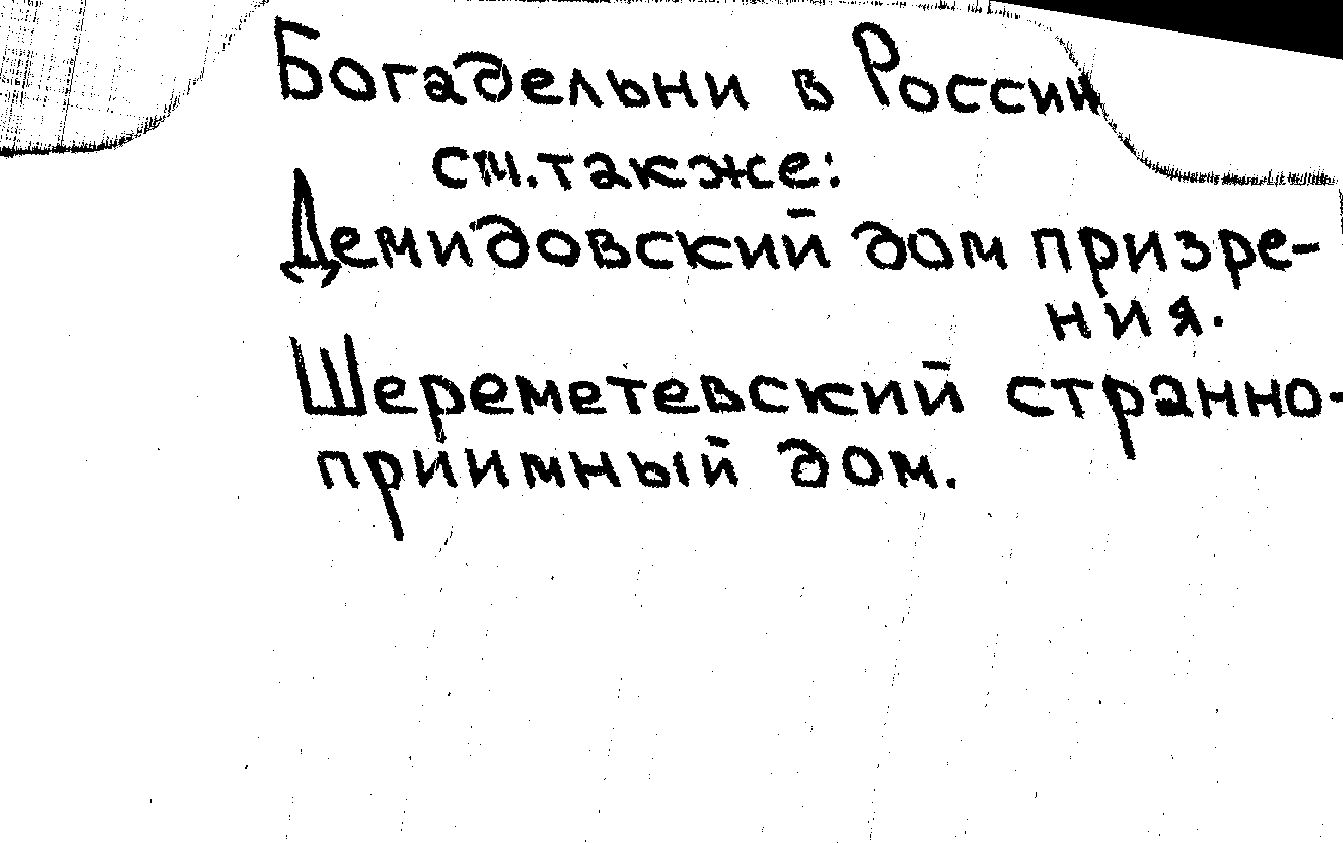 Богадельни в России
см. также:
Демидовский дом призре-
ния.
Шереметевский странно-
приимный дом.